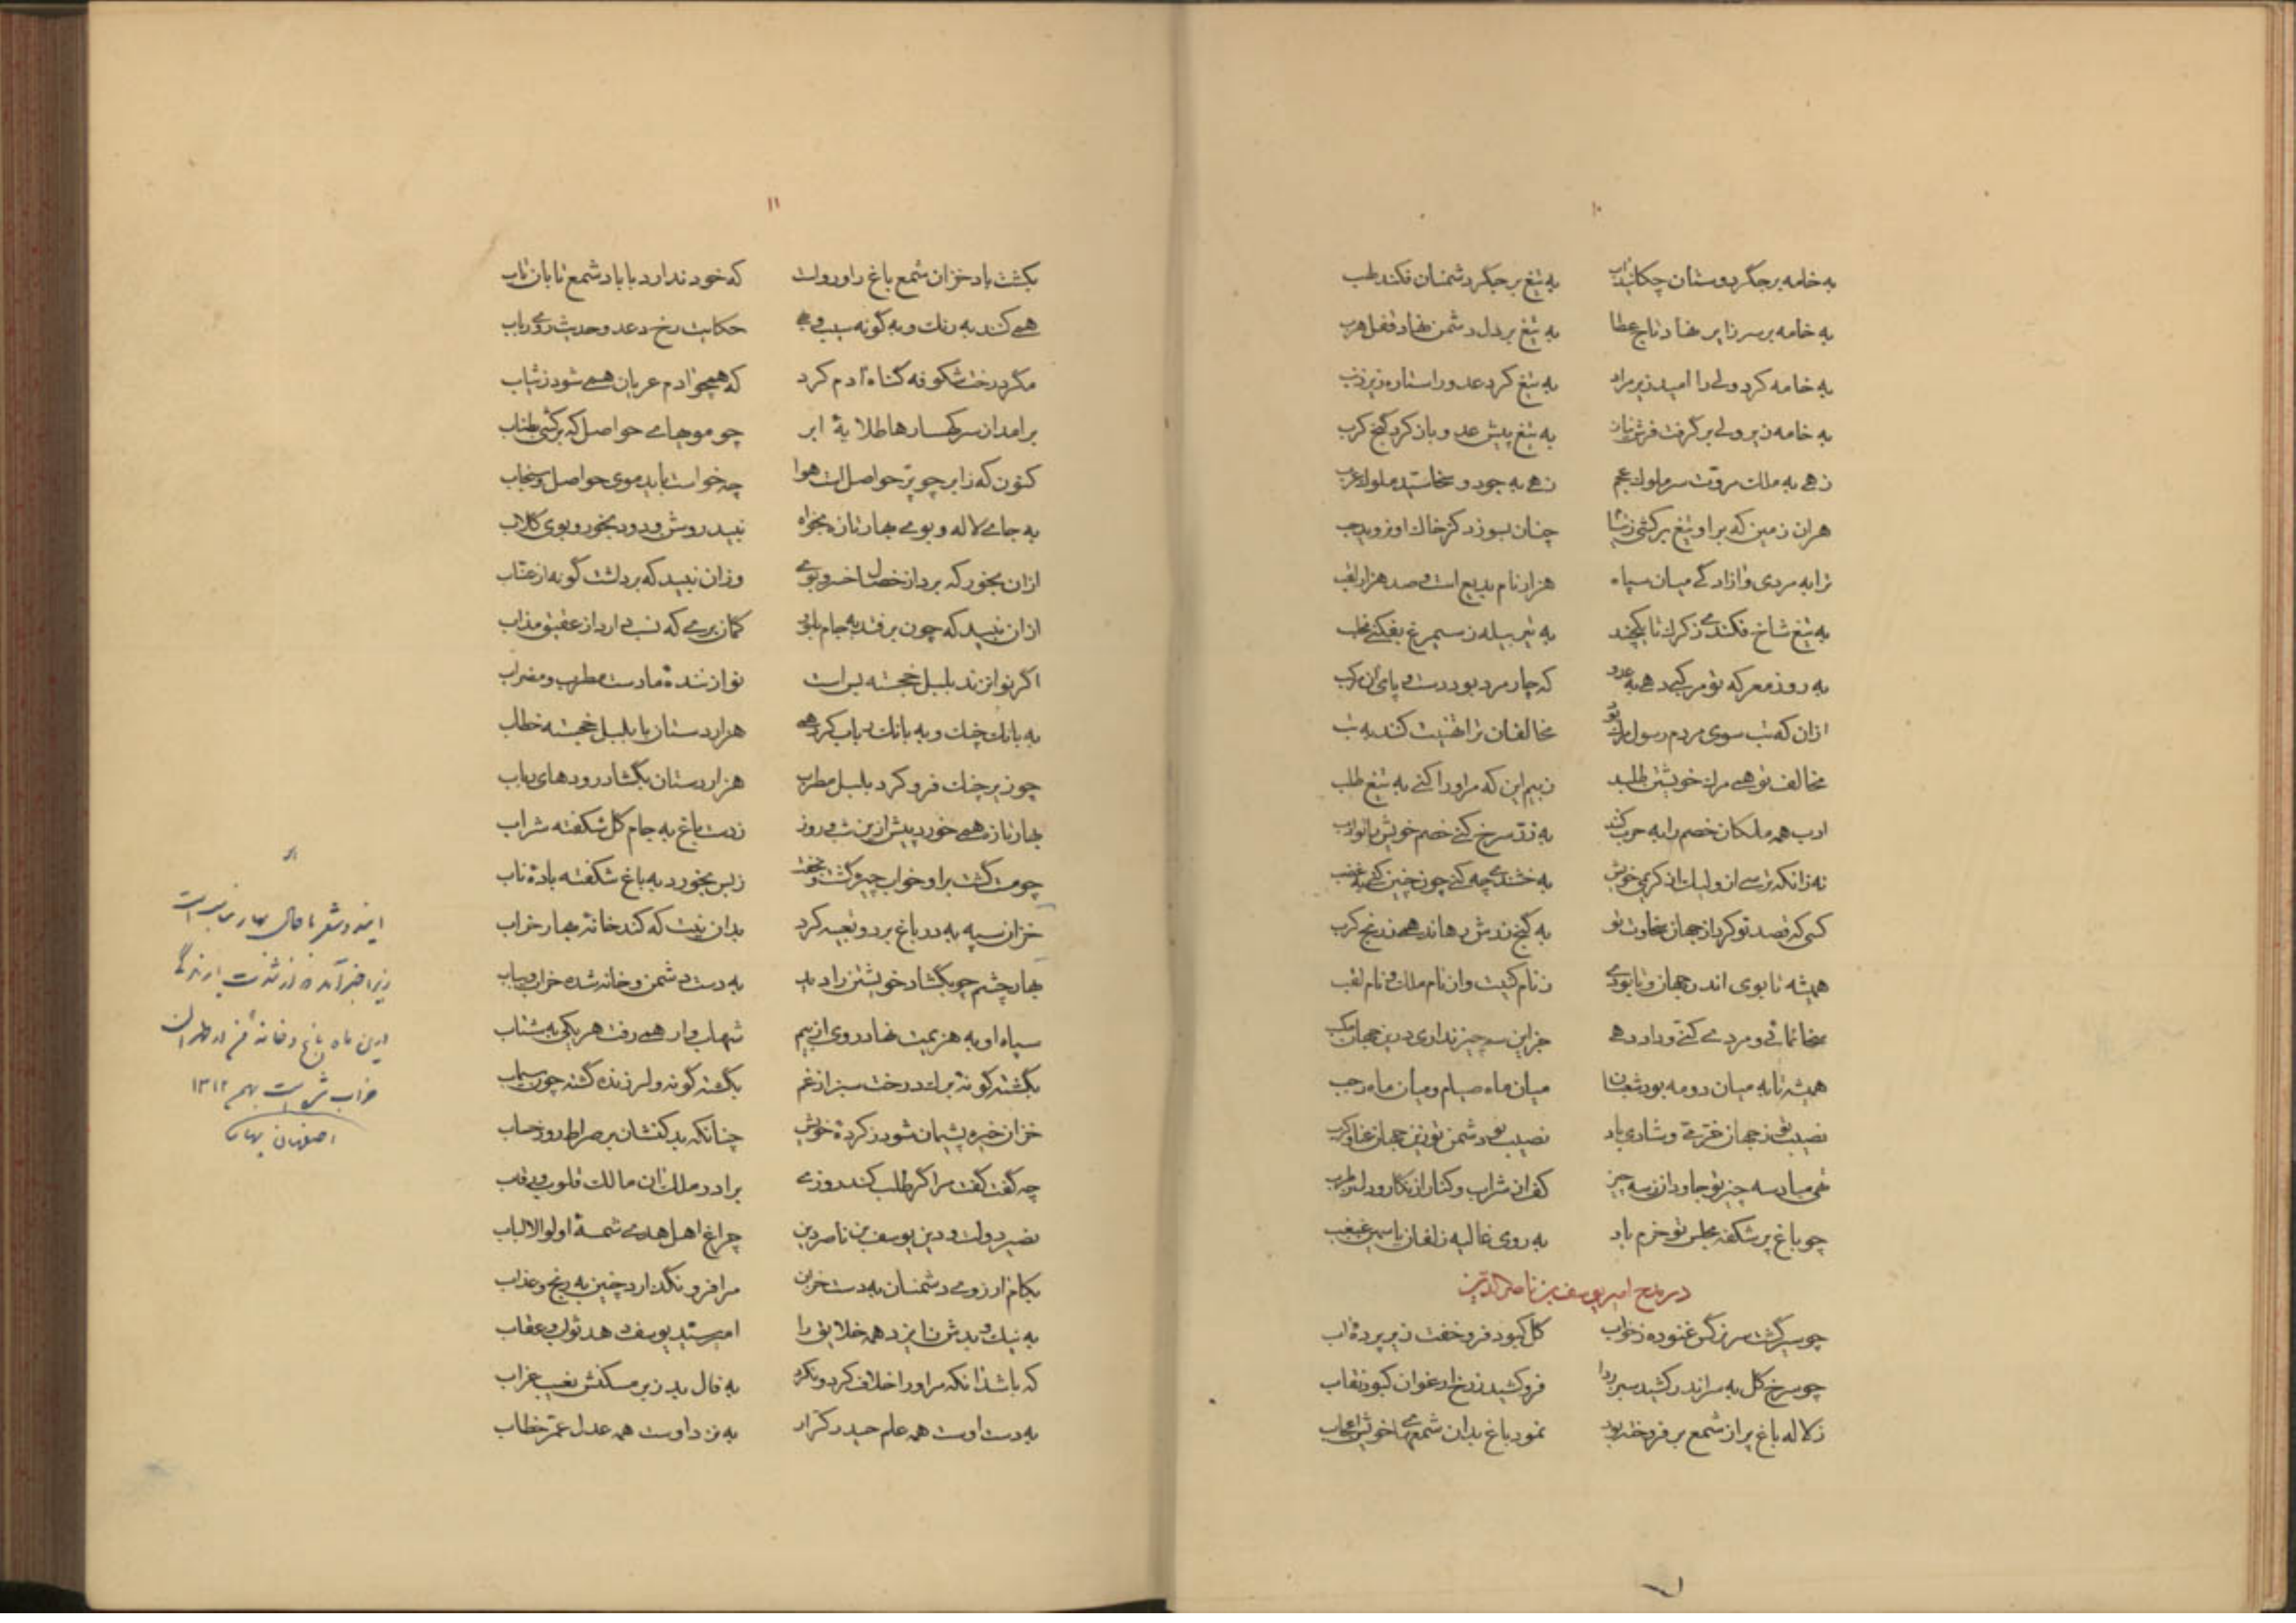 ۱۰
به خامه بر جگر دوستان چکانید آب به تیغ بر جگر دشمنان فکند لهب
به خامه بر سر زایر نهاد تاج عطا به تیغ بر دل دشمن نهاد قفل هرب
به خامه کرد ولی را امید زیر مراد به تیغ کرد عدو را ستاره زیر ذنب
به خامه زیر ولی بر گرفت فرش نیاز به تیغ پیش عدو باز کرد گنج کرب
زهی به ملک مروت سر ملوک عجم زهی به جود و سخا سید ملوک عرب
هر ان زمین که بر او تیغ بر کشی ز نیام چنان بسوزد کز خاک او نروید حب
ترا به مردی و ازادگی میان سپاه هزار نام بدیع است و صد هزار لقب
به تیغ شاخ فکندی ز کرک تا یکچند به تیر بیله ز سیمرغ بفکنی مخلب
به روز معرکه تو مرکبی دهی به عدو که چار مرد بود دست و پای آن مرکب
ازان که شب سوی مردم رسول مرگ تو مخالفان ترا تهنیت کنند به تب
مخالف تو همی مرگ خویشتن طلبد ز بیم این که مر او را کنی به تیغ طلب
ادب همه ملکان خصم را به حرب کنند به زر سرخ کنی خصم خویش را تو ادب
نه زانکه ترسی از ولیک از کریمی خویش به خشندی چه کنی چون چنین کنی به غضب
کسی که قصد تو کرد از جهان سخاوت تو به گنج زرش رهاند همی ز رنج کرب
همیشه تا بوی اندر جهان و تا بودی ز نام کنیت و از نام ملک و نام لقب
سخا نمائی و مردمی کنی و داد دهی جز این سه چیز نداری درین جهان مکسب
همیشه تا به میان دو مه بود شعبان میان ماه صیام و میان ماه رجب
نصیب تو ز جهان خرمی و شادی باد نصیب دشمن تو زین جهان عنا و کرب
تهی مباد سه چیز تو جاودان ز سه چیز کف از شراب و کنار از نگار و دل ز طرب
چو باغ پر شکفه مجلس تو خرم باد به روی غالیه زلفان یاسمین غبغب
در مدح امیر یوسف بن ناصرالدین
چو سیر گشت سر نرگس غنوده ز خواب گل کبود فرو خفت زیر پرده آب
چو سرخ گل به سر اندر کشید سبز ردا فرو کشید ز رخ ارغوان کبود نقاب
ز لاله باغ پر از شمع بر فروخته بود نمود باغ بدان شمعها خوش اعجاب
۱۱
بکشت باد خزان شمع باغ را و رواست که خود ندارد با باد شمع تابان تاب
همی کند به رنک و به گونه سیب و می حکایت رخ دعد و حدیث روی رباب
مگر درخت شکوفه گناه آدم کرد که همچو ادم عریان همی شود ز ثیاب
بر امد از سر کهسارها طلایه ابر چو موجهای حواصل که بر کشی بطناب
کنون که ز ابر چو پر حواصل است هوا چه خواست باید موی حواصل و سنجاب
به جای لاله و بوی بهار تازه بخواه نبید روشن و دود بخور و بوی گلاب
ازان بخور که برد از خصال خسرو بوی وزان نبید که برداشت گونه از عناب
ازان نبید که چون بر فتد به جام بلور گمان بری که نسب دارد از عقیق مذاب
اگر نوا نزند بلبل خجسته بس است نوازنده ما دست مطرب و مضراب
به بانک چنک و به بانک رباب کرد همی هزار دستان با بلبل خجسته خطاب
چو زیر چنک فرو کرد بلبل مطرب هزار دستان بگشاد رودهای رباب
بهار تازه همی خورد پیش ازین شب و روز ز دست باغ به جام گل شکفته شراب
چو مست گشت بر او خواب چیره گشت و بخفت ز بس بخورد به باغ شکفته باده ناب
خزان سپه به در باغ برد و تعبیه کرد بدان نیت که کند خانهٔ بهار خراب
بهار چشم چو بگشاد خویشتن را دید به دست دشمن و خانه شده خراب و یباب
سپاه او به هزیمت نهاد روی از بیم شهاب وار همی رفت هر یکی به شتاب
بگشته گونهٔ برگ درخت سبز از غم بگشته گونه و لرزنده گشته چون سیماب
خزان خیره پشیمان شود ز کرده خویش چنانکه بد کنشان بر صراط روز حساب
چه گفت گفت مرا گر طلب کند روزی برادر ملک آن مالک قلوب و رقاب
نصیر دولت و دین یوسف بن ناصر دین چراغ اهل هدی شمسهٔ اولوالالباب
بکام ارزوی دشمنان به دست خزان مرا فرو نگذارد چنین به رنج و عذاب
به نیک و بد شرنا یزد همه خلایق را امیر سید یوسف دهد ثواب و عقاب
که باشد آنکه مر او را خلاف کرد و نکرد به فال بد ز بر مسکنش نعیب غراب
به دست اوست همه علم حیدر کرار به نزد اوست همه عدل عمر خطاب
این دو شعر با حال بهار مناسب است
زیرا
این ماه باغ و خانه من از طهران
خراب شده است بهمن ۱۳۱۲
اصفهان بهار